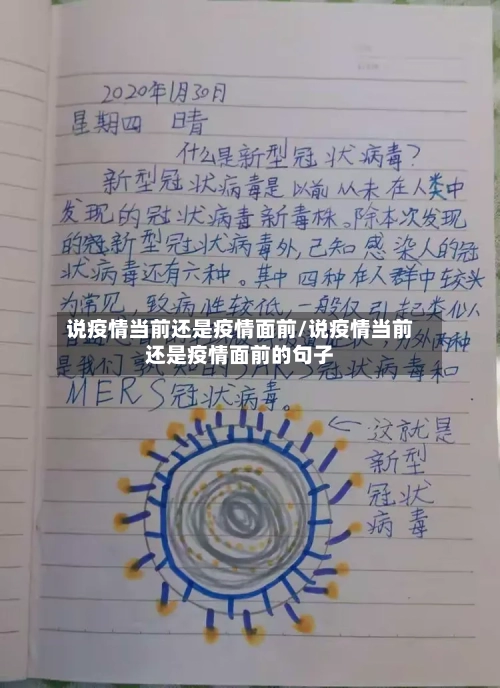 2020年1月30日
星期四 晴
什么是新型冠状病毒?
新型冠状病毒是以前从未在人类中
发现的冠状病毒新毒株。除本次发现
的新型冠状病毒外,已知感染人的冠
状病毒还有六种。其中四种在人群中较头
为常见,致病性较低,一般仅引起类似人
说疫情当前还是疫情面前/说疫情当前
还是疫情面前的句子
另外两种
是我们
冠状病毒和
MERS冠状病毒。
← 这就是
新型
冠状
病毒